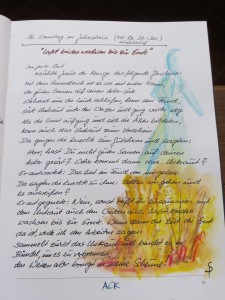 16. Sonntag im Jahreskreis (Mt 13, 24-30)
"Laßt beides wachsen bis zur Ernte"
In jener Zeit
erzählte Jesus der Menge das folgende Gleichnis:
Mit dem Himmelreich ist es wie mit einem Mann,
der guten Samen auf seinen Acker säte.
Während nun die Leute schliefen, kam sein Feind,
säte Unkraut unter den Weizen und ging wieder weg.
Als die Saat aufging und sich die Ähren bildeten,
kam auch das Unkraut zum Vorschein.
Da gingen die Knechte zum Gutsherrn und sagten:
Herr, hast Du nicht guten Samen auf deinen
Acker gesät? Woher kommt dann das Unkraut?
Er antwortete: Das hat ein Feind von mir getan.
Da sagten die Knechte zu ihm: Sollen wir gehen und
es ausreißen?
Er entgegnete: Nein, sonst reißt ihr zusammen mit
dem Unkraut auch den Weizen aus. Laßt beides
wachsen bis zur Ernte. Wenn dann die Zeit der Ernte
da ist, werde ich den Arbeitern sagen:
Sammelt zuerst das Unkraut und bindet es in
Bündel, um es zu verbrennen;
den Weizen aber bringt in meine Scheune.
ACK